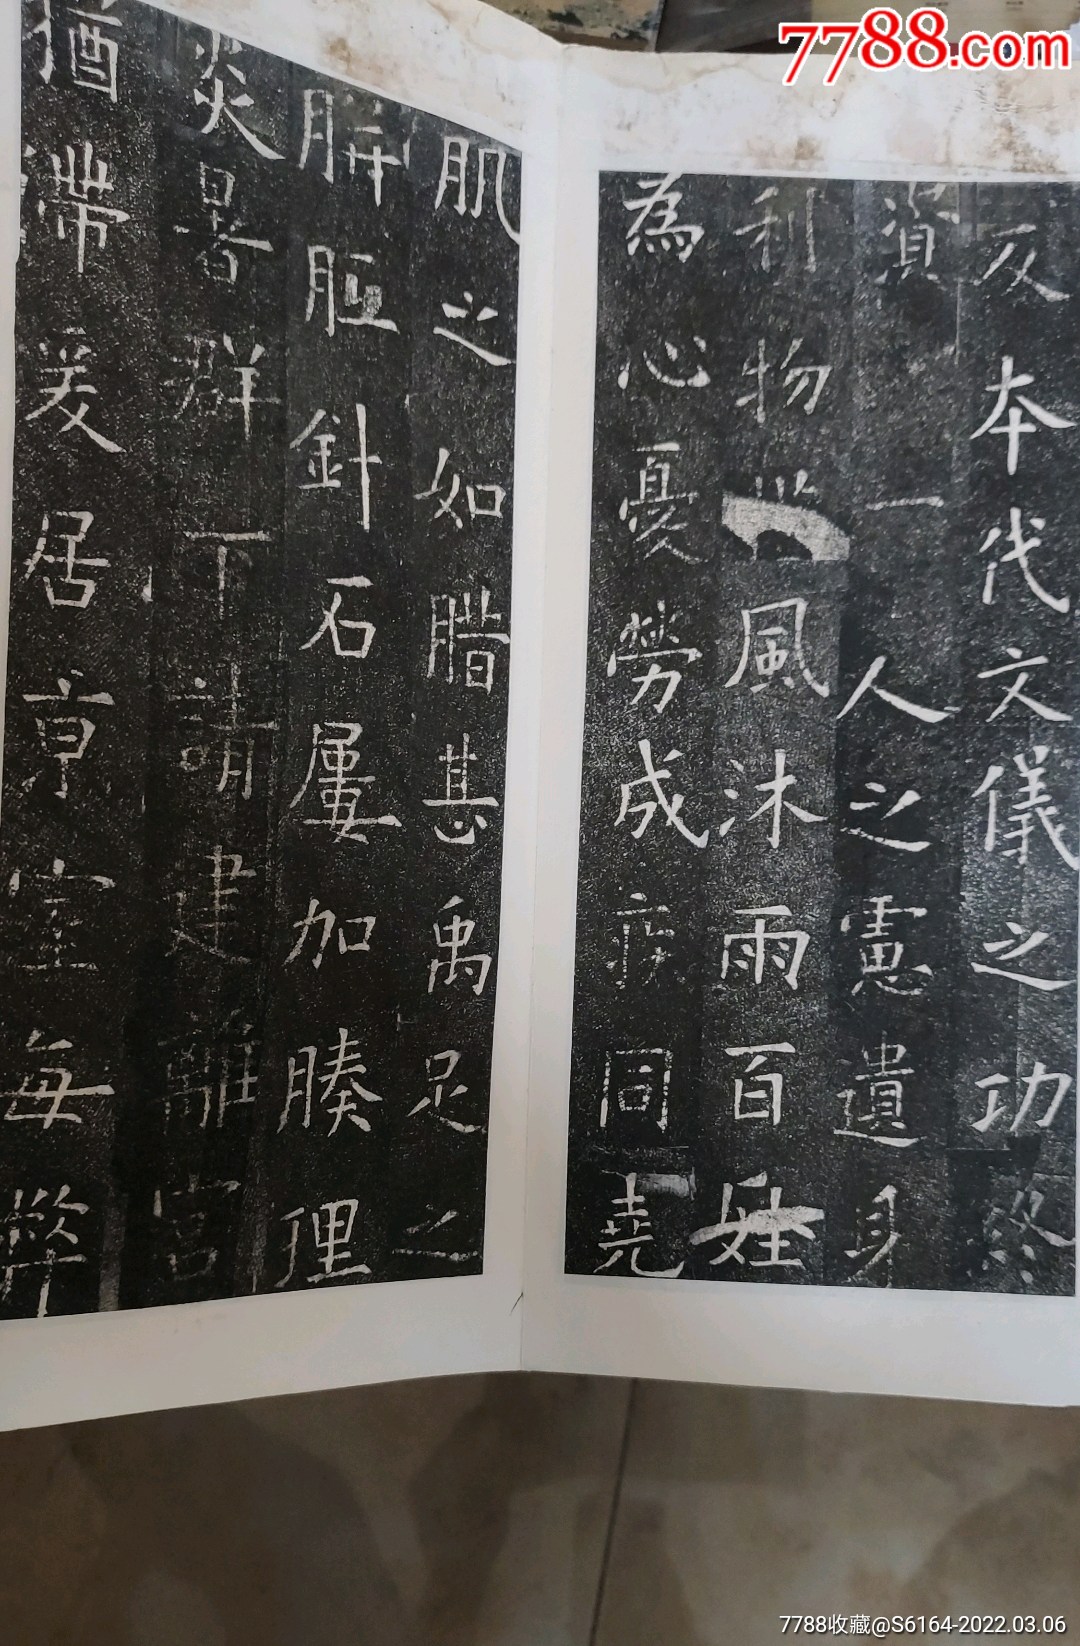 反本代文儀之功終
資一人之慮遺身
利物風沐雨百姓
為心憂勞成疾同堯
肌之如腊甚禹足之
胼胝針石屢加腠理
炎暑群下請建離宮
猶滯爰居京室每弊
7788.com
7788收藏@S6164-2022.03.06